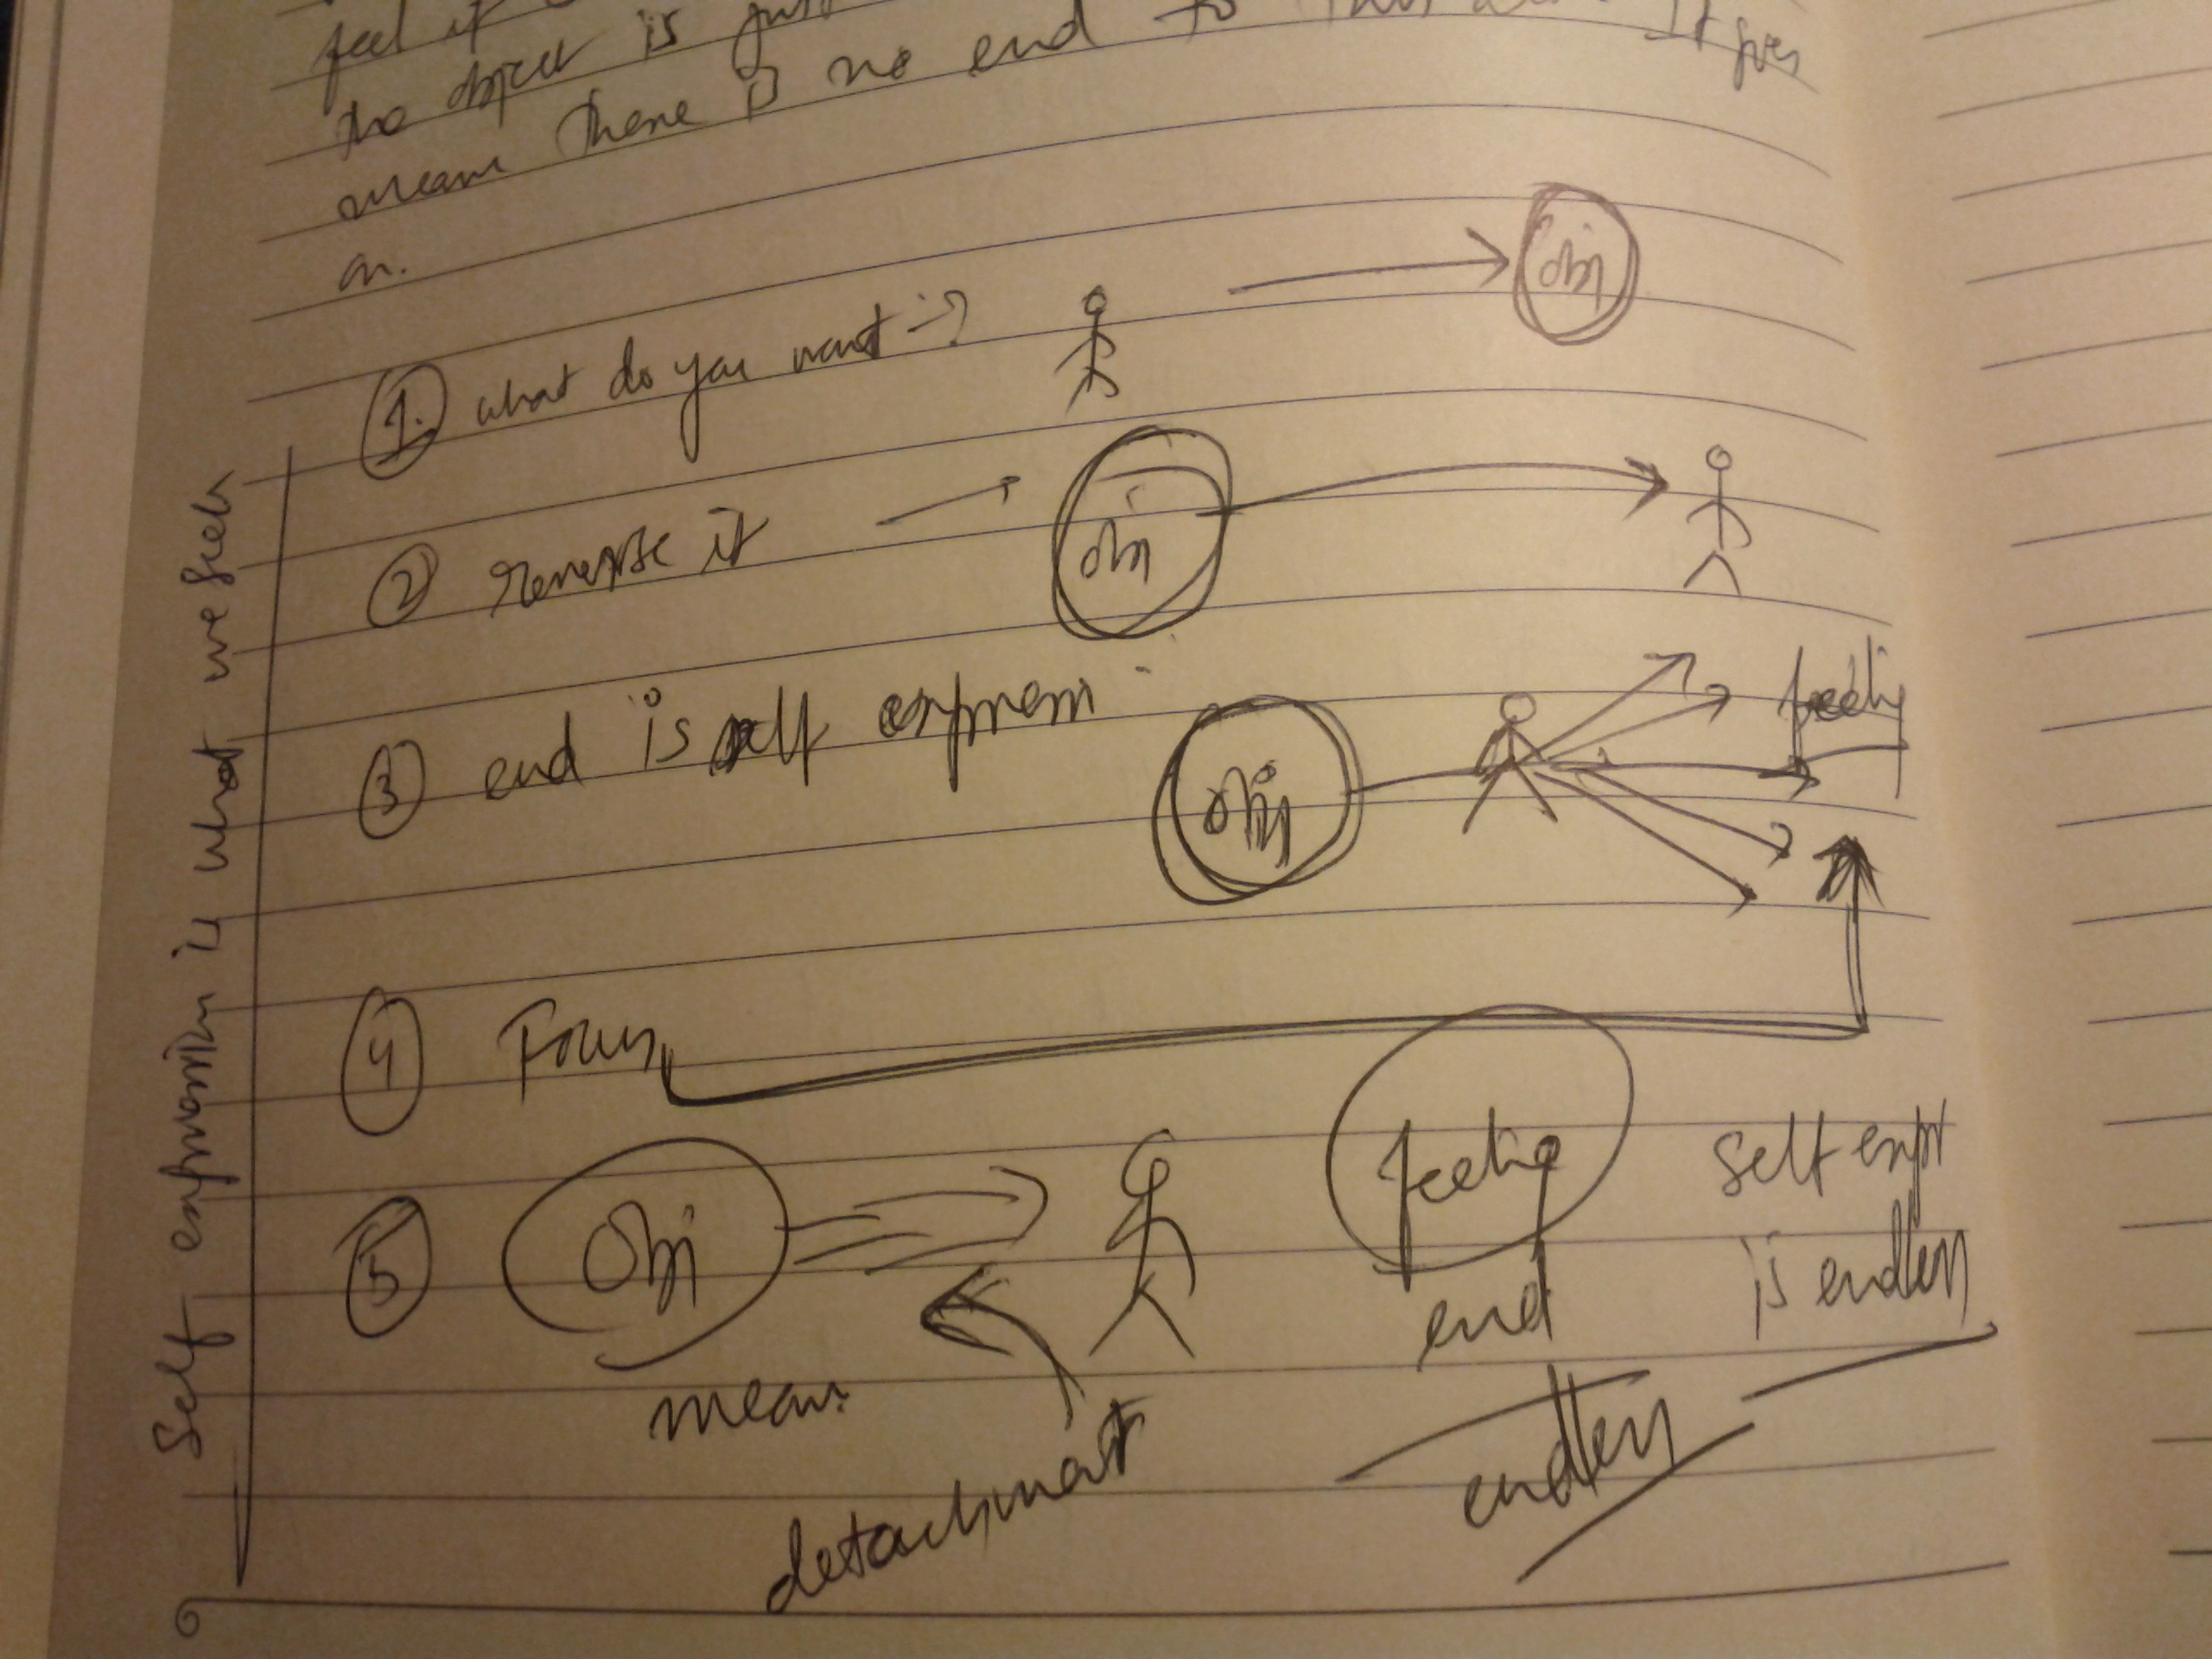 feel if
the object is just
means there is no end to this It goes
on.
1. what do you want ? obj
2 reverse it obj
3 end is self express obj feeling
4 Focus
5 Obj feeling self expr
means end is endless
detachment endless
Self expression is what we seek